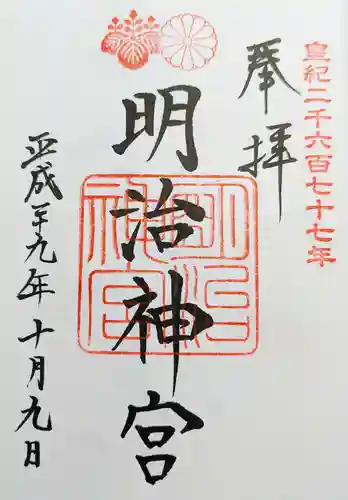 皇紀二千六百七十七年
奉拝
明治神宮
明治神宮
平成二十九年十月九日